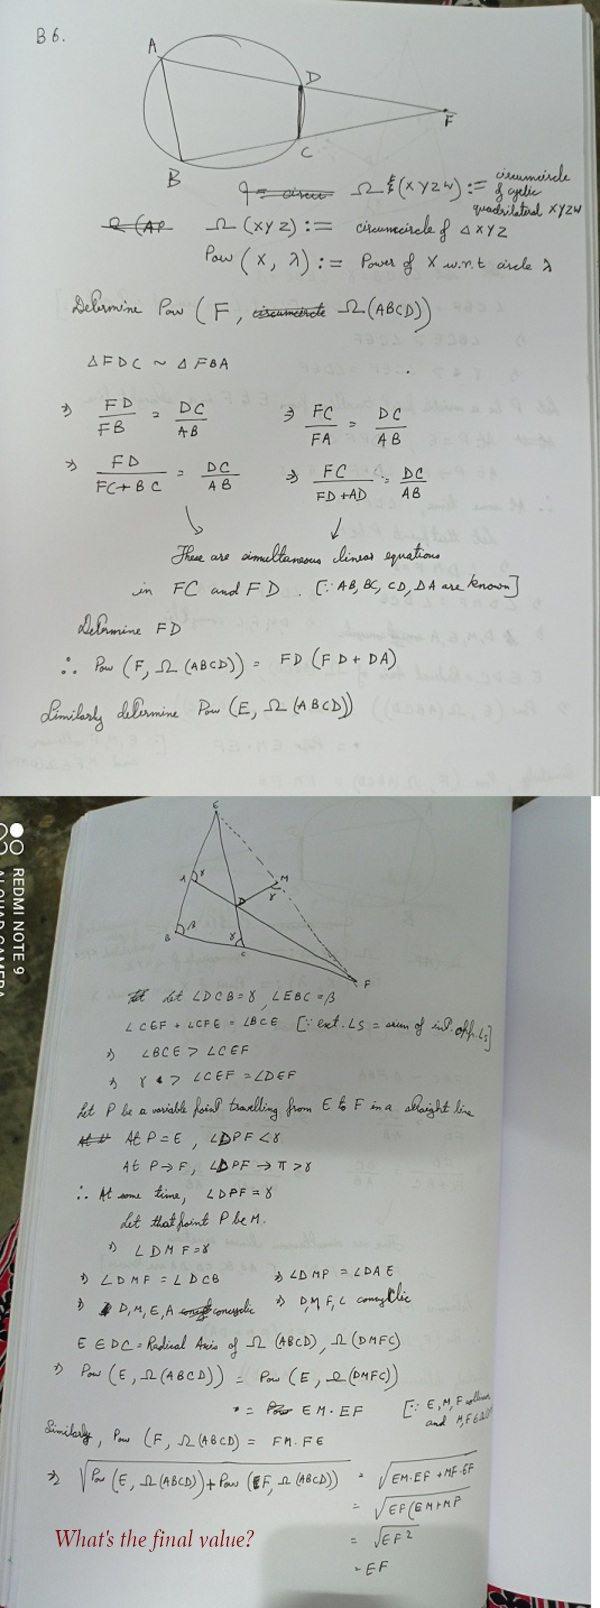 B6.
A
D
F
B
C
Ω (XYZW) := circumcircle
of cyclic
quadrilateral XYZW
Ω (XYZ) := circumcircle of △XYZ
Pow (X, λ) := Power of X w.r.t circle λ
Determine Pow (F, Ω(ABCD))
△FDC ~ △FBA
⇒ FD/FB = DC/AB ⇒ FC/FA = DC/AB
⇒ FD/(FC+BC) = DC/AB ⇒ FC/(FD+AD) = DC/AB
These are simultaneous linear equations
in FC and FD. [∵ AB, BC, CD, DA are known]
Determine FD
∴ Pow (F, Ω(ABCD)) = FD (FD + DA)
Similarly determine Pow (E, Ω(ABCD))
E
A γ M
D γ
B β γ C
F
REDMI NOTE 9
AI QUAD CAMERA
Let ∠DCB=γ, ∠EBC=β
∠CEF + ∠CFE = ∠BCE [∵ ext. ∠s = sum of int. opp. ∠s]
⇒ ∠BCE > ∠CEF
⇒ γ > ∠CEF = ∠DEF
Let P be a variable point travelling from E to F in a straight line
At P=E, ∠DPF < γ
At P→F, ∠DPF → π > γ
∴ At some time, ∠DPF = γ
Let that point P be M.
⇒ ∠DMF=γ
⇒ ∠DMF = ∠DCB ⇒ ∠DMF = ∠DAE
⇒ D, M, E, A concyclic ⇒ D, M, F, C concyclic
E ∈ DC = Radical Axis of Ω (ABCD), Ω(DMFC)
⇒ Pow (E, Ω(ABCD)) = Pow (E, Ω(DMFC))
= EM. EF [∵ E, M, F collinear
and M, F ∈
Similarly, Pow (F, Ω(ABCD) = FM. FE
⇒ √(Pow (E, Ω(ABCD)) + Pow (F, Ω(ABCD))) = √(EM.EF + MF.EF)
= √(EF(EM+MF
= √EF²
= EF
What's the final value?